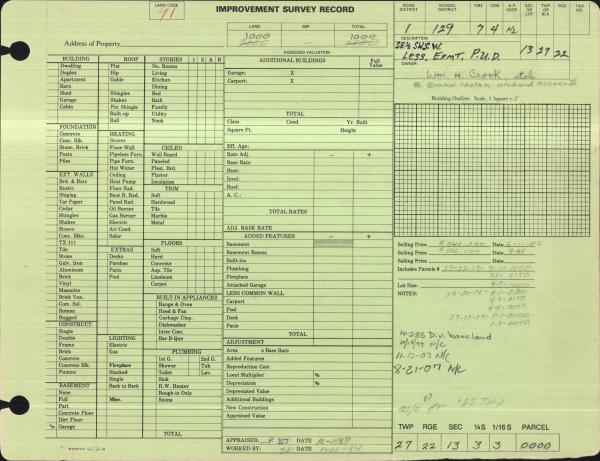 LAND CODE
91
IMPROVEMENT SURVEY RECORD
LAND IMP. TOTAL
1000 — 1000
ASSESSED VALUATION
Address of Property
ROAD DISTRICT SCHOOL DISTRICT FIRE CEM A.P. HOSP SEC OR LOT TWP OR BLK RGE TAX NO.
1 129 7 4 H2
DESCRIPTION
SE¼ SW SW 13 27 22
Less Esmt. P.U.D.
OWNER:
Wm. H. Crook, etal
% Grand Chelan Orchard Assoc II
Building Outline: Scale, 1 Square = 2'
BUILDING ROOF STORIES 1 2 A B
Dwelling Flat No. Rooms
Duplex Hip Living
Apartment Gable Kitchen
Barn Dining
Shed Shingles Bed
Garage Shakes Bath
Cabin Pat Shingle Family
Built up Utility
Roll Nook
FOUNDATION
Concrete HEATING
Conc. Blk. Stoves
Stone, Brick Floor-Wall CEILED
Posts Pipeless Furn. Wall Board
Piles Pipe Furn. Paneled
Hot Water Plast. Brd.
EXT. WALLS Ceiling Plaster
Brd. & Bats Heat Pump Insulation
Rustic Floor Rad. TRIM
Shiplap Base B. Rad. Soft
Tar Paper Panel Rad. Hardwood
Cedar Oil Burner Tile
Shingles Gas Burner Marble
Shakes Electric Metal
Stucco Air Cond.
Conc. Blks. Solar
TX 111 FLOORS
Tile EXTRAS Soft
Stone Decks Hard
Galv. Iron Porches Concrete
Aluminum Patio Asp. Tile
Brick Pool Linoleum
Vinyl Carpet
Masonite
Brick Ven. BUILT IN APPLIANCES
Com. Sel. Range & Oven
Roman Hood & Fan
Rugged Garbage Disp.
CONSTRUCT. Dishwasher
Single Inter Com.
Double LIGHTING Bar-B-Que
Frame Electric
Brick Gas PLUMBING
Concrete 1st G. 2nd G.
Concrete Blk. Fireplace Shower Tub
Pumice Stacked Toilet Lav.
Single Sink
BASEMENT Back to Back H.W. Heater
None Rough-in Only
Full Misc. Sauna
Part
Concrete Floor
Dirt Floor
% Garage TOTAL
ADDITIONAL BUILDINGS Full Value
Garage: X
Carport: X
TOTAL
Class Cond. Yr. Built
Square Ft. Height
Eff. Age:
Rate Adj. — +
Base Rate
Heat:
Insul:
Roof:
A. C.:
TOTAL RATES
ADJ. BASE RATE
ADDED FEATURES — +
Basement
Basement Rooms
Built-ins
Plumbing
Fireplace
Attached Garage
LESS COMMON WALL
Carport
Pool
Deck
Patio
TOTAL
ADJUSTMENT
Area x Base Rate
Added Features
Reproduction Cost
Local Multiplier %
Depreciation %
Depreciated Value
Additional Buildings
New Construction
Appraised Value
APPRAISER: DATE
WORKED BY: DATE
Selling Price Date
Selling Price Date
Includes Parcels #
Lot Size:
NOTES:
10-2-85 Div. bareland
10/12/99 N/C
11-12-03 N/C
8-21-07 N/C
TWP RGE SEC ¼S 1/16 S PARCEL
27 22 13 3 3 0000